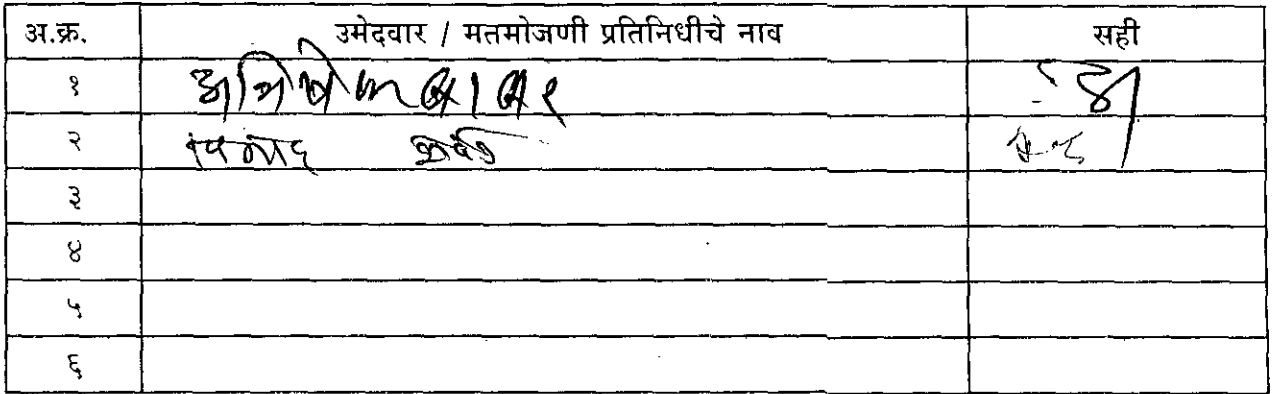 अ.क्र. उमेदवार / मतमोजणी प्रतिनिधीचे नाव सही
१ अभिषेक बाबर
२
३
४
५
६